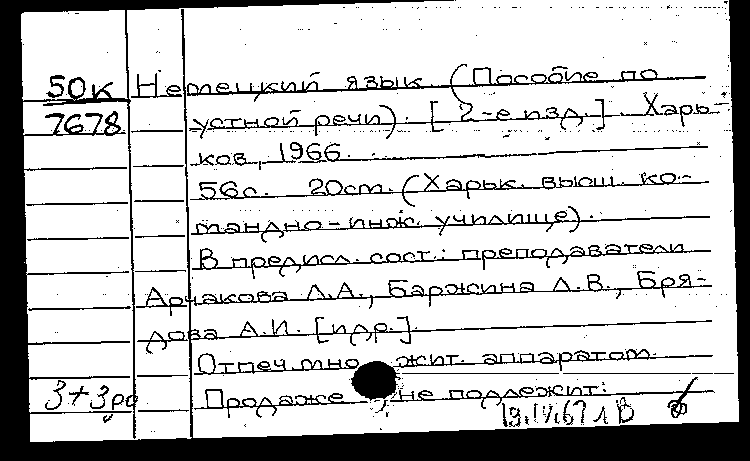 50к Немецкий язык. (Пособие по
7678 устной речи). [2-е изд.]. Харь-
ков, 1966.
56с. 20cm. (Харьк. высш. ко-
мандно-инж. училище).
В предисл. сост.: преподаватели
Арчакова Л.А., Баржина Л.В., Бря-
дова А.И. [и др.].
Отпеч. множит. аппаратом.
3+3 Продаже не подлежит.
19.IV.67